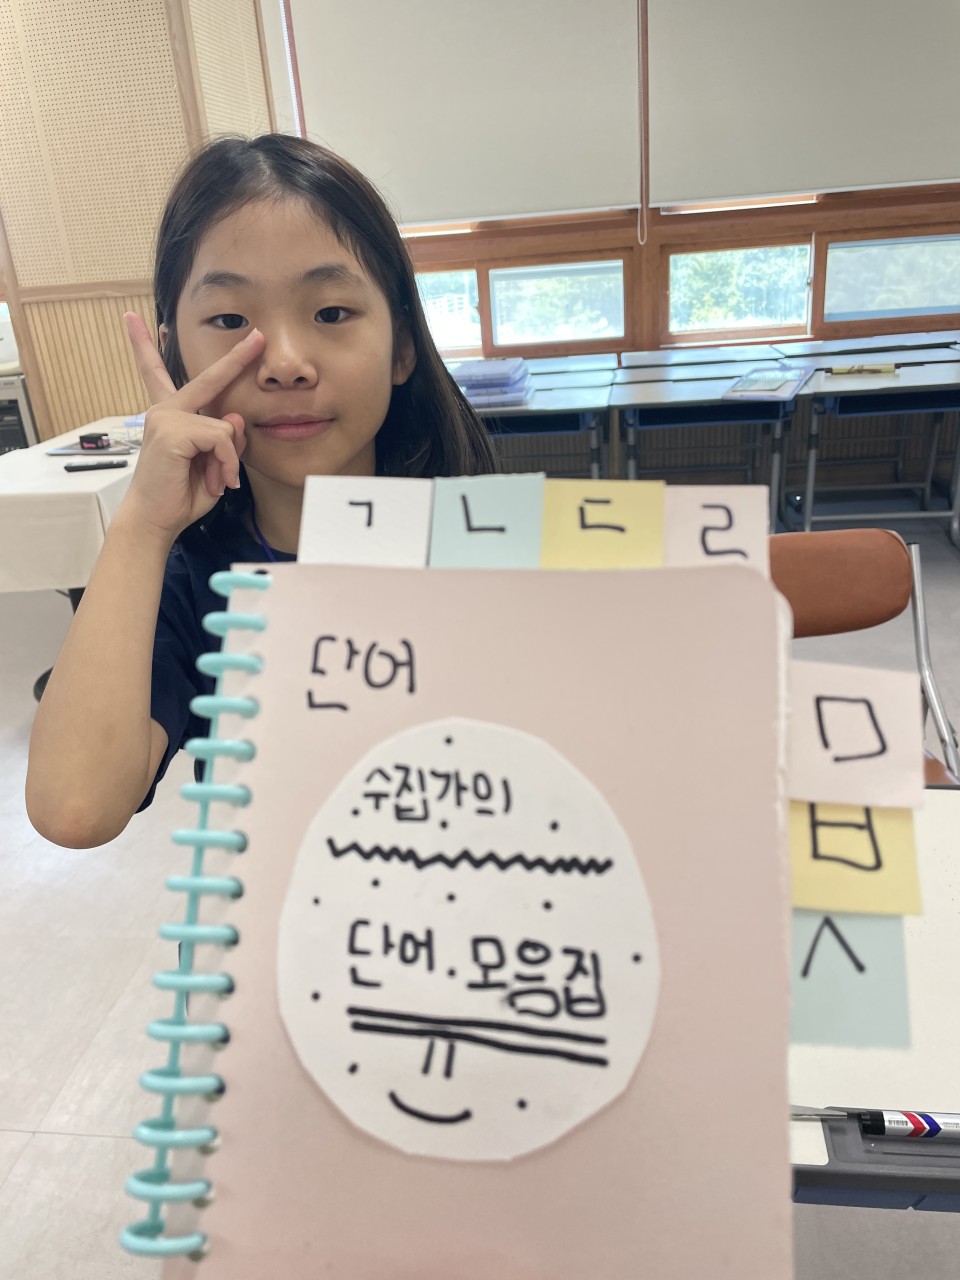 ㄱ ㄴ ㄷ ㄹ
단어
수집가의
단어 모음집
ㅁ
ㅂ
ㅅ